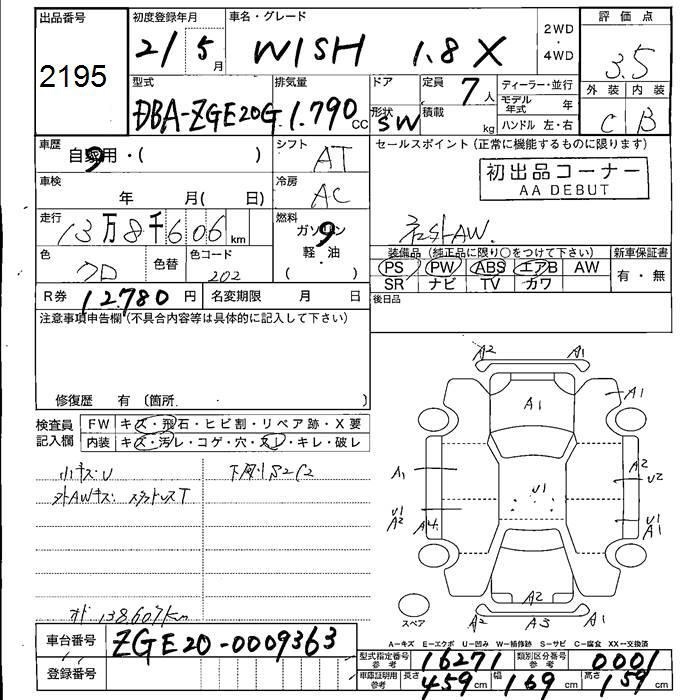 出品番号 初度登録年月 車名・グレード 評価点
2195 21 5月 WISH 1.8X 2WD・4WD 3.5
型式 排気量 ドア 定員 7人 ディーラー・並行 外装 内装
DBA-ZGE20G 1.790cc 形状 SW 積載 kg モデル年式 年 C B
ハンドル 左・右
車歴 自家用・( ) シフト AT セールスポイント(正常に機能するものに限ります)
車検 年 月( 日) 冷房 AC 初出品コーナー
AA DEBUT
走行 13万8千606km 燃料 ガソリン 社外AW.
色 クロ 色替 色コード 202 軽・油 ( ) 装備品(純正品に限り○をつけて下さい) 新車保証書
PS PW ABS エアB AW 有・無
SR ナビ TV カワ
R券 12.780円 名変期限 月 日 後日品
注意事項申告欄(不具合内容等は具体的に記入して下さい)
修復歴 有〔箇所.
検査員記入欄 FW キズ・飛石・ヒビ割・リペア跡・X要
内装 キズ・汚レ・コゲ・穴・スレ・キレ・破レ
小キズ.U 下廻りS2C2
外AWキズ.
ｵﾄﾞ 138.607km
A2 A1
A1 A1
A1 A2 U2
U1
U1 A2 A4 U1 A1
A2
スペア A2 A3 A1
A-キズ E-エクボ U-凹み W-補修跡 S-サビ C-腐食 XX-交換済
車台番号 ZGE20-0009363
型式指定番号 参考 16271 類別区分番号 参考 0001
登録番号 車庫証明用 参考 長さ 459cm 幅 169cm 高さ 159cm